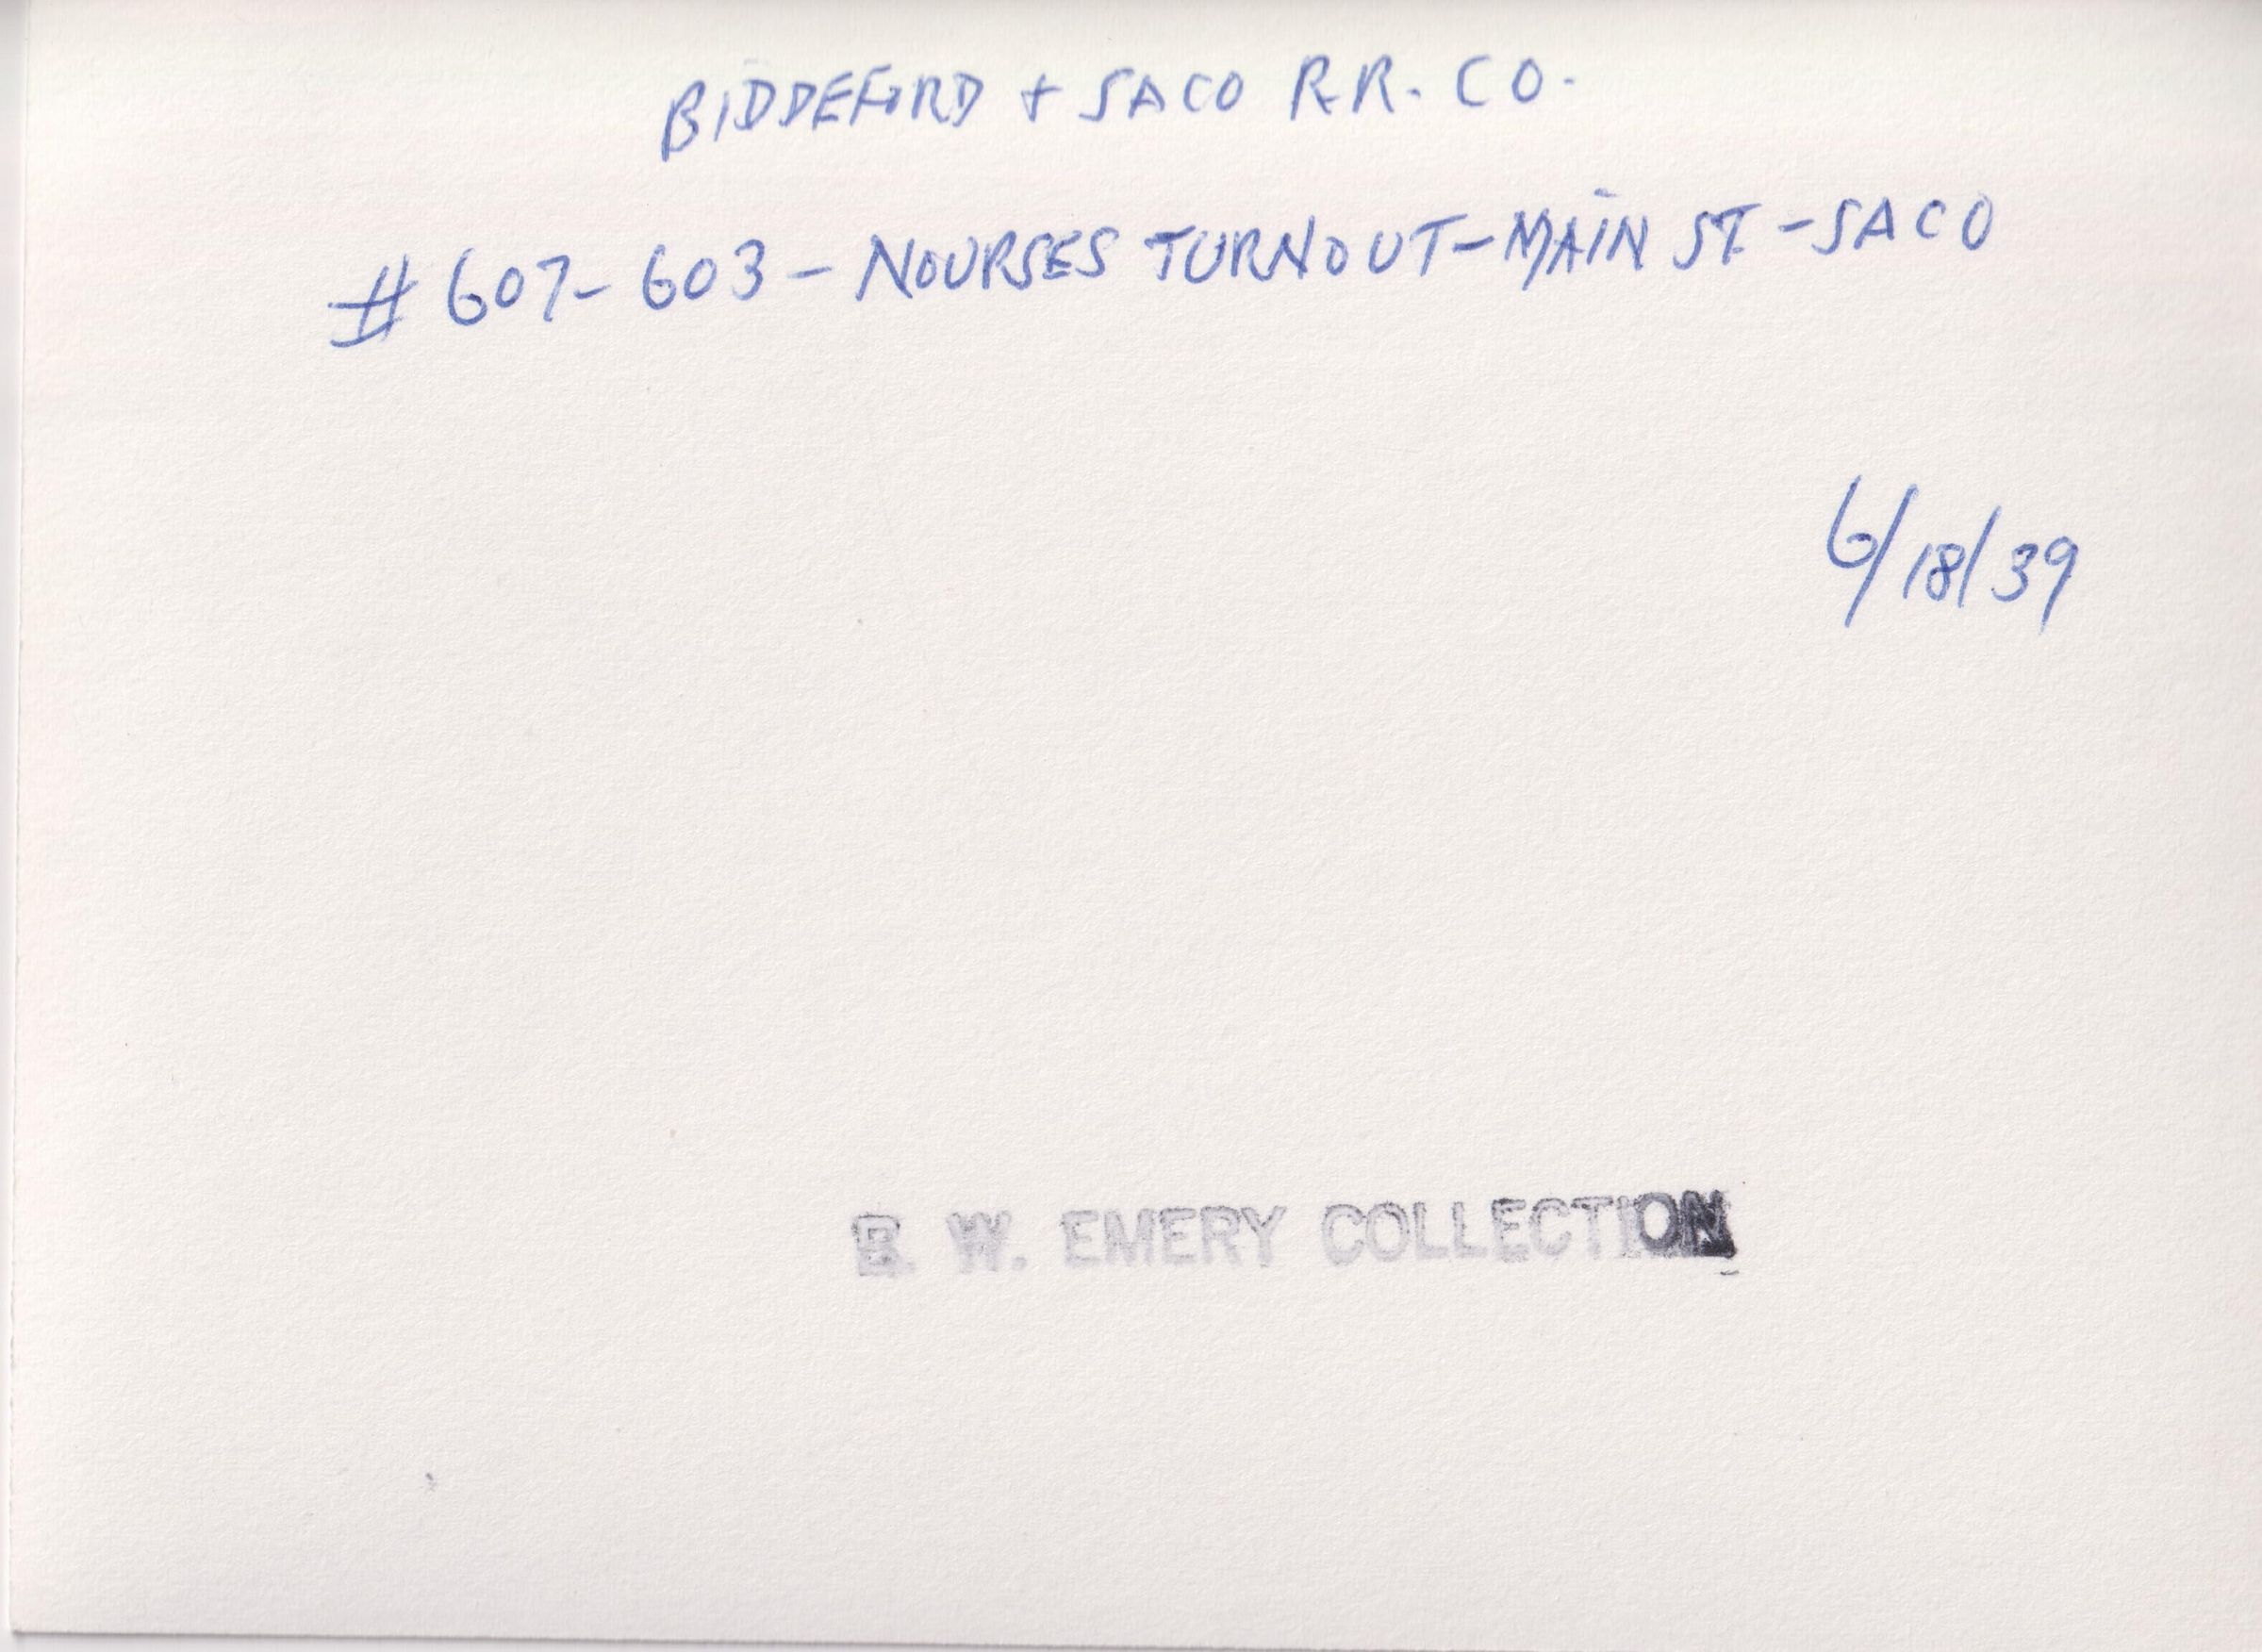 BIDDEFORD + SACO R.R. CO.
# 607-603-NOURSES TURNOUT-MAIN ST-SACO
6/18/39
E. W. EMERY COLLECTION